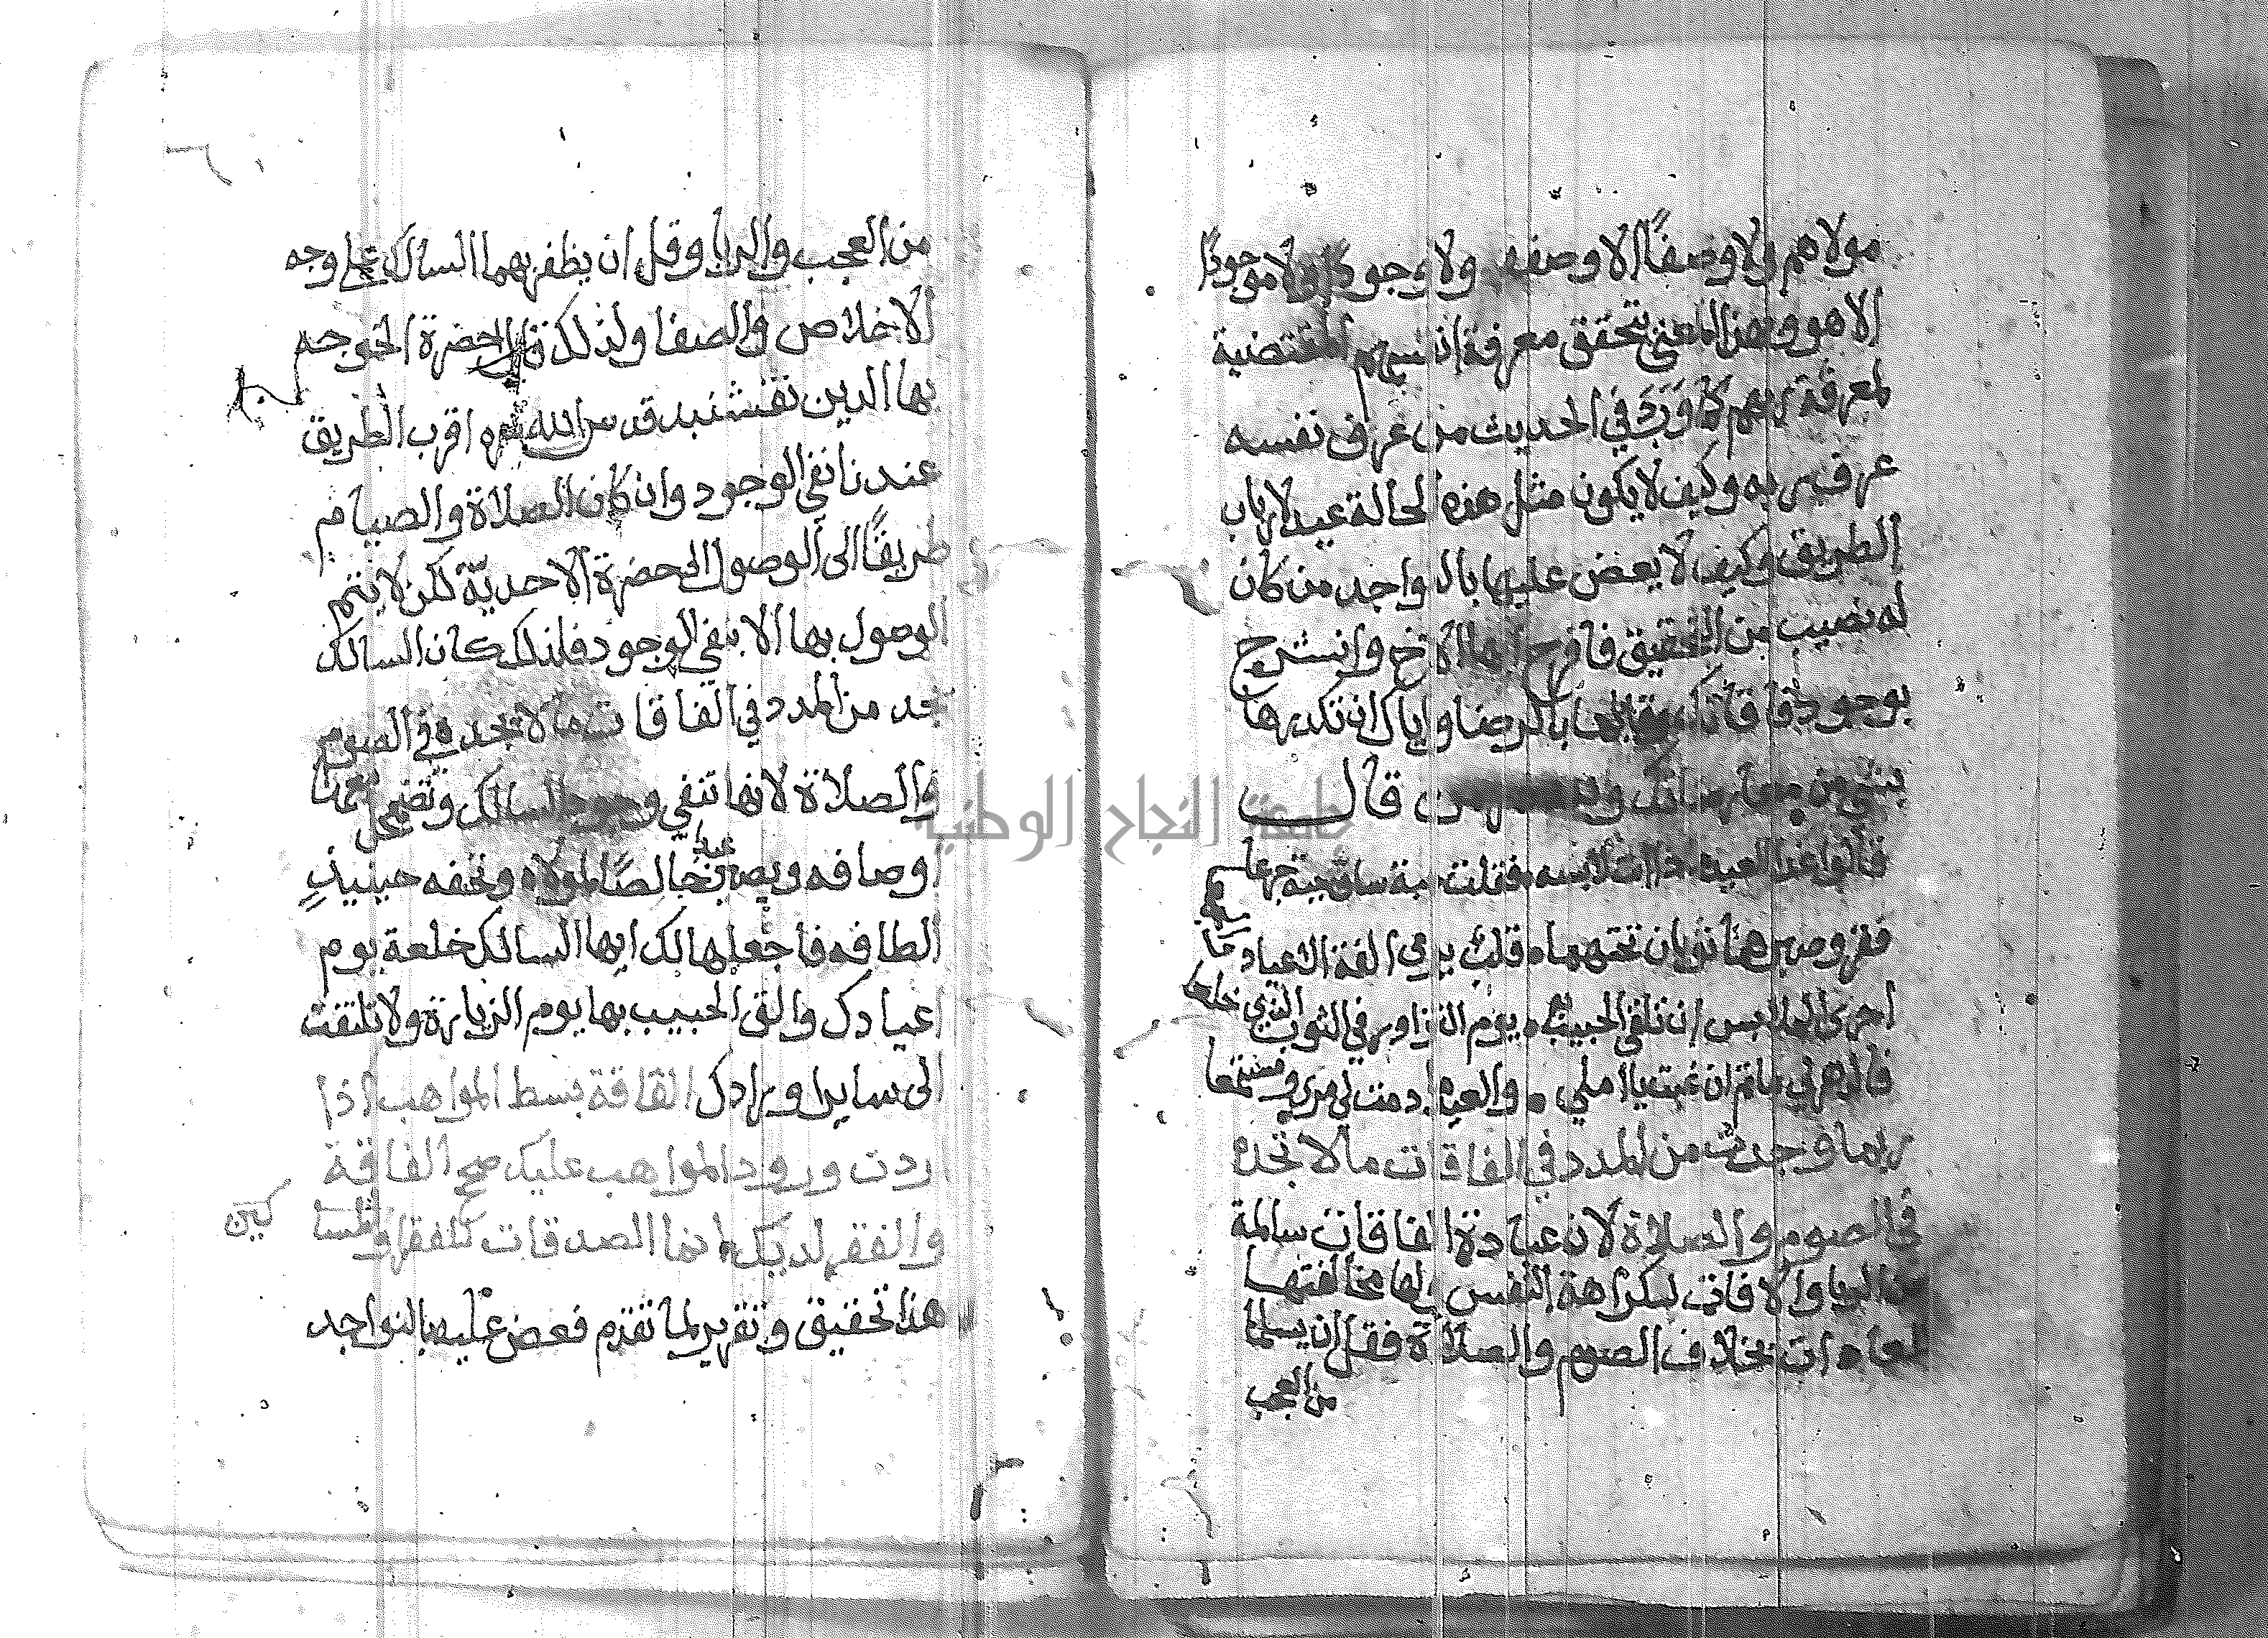 مولاهم ولا وصفًا الا وصفه ولا وجودًا ولا موجودًا
الا هو وبهذا المعنى يتحقق معرفة انفسهم المقتضية
لمعرفة ربهم كما وَرَدَ في الحديث من عرف نفسه
عرف ربه وكيف لا يكون مثل هذه الحالة عيد لارباب
الطريق وكيف لا يعض عليها بالنواجد من كان
له نصيب من التحقيق فافرح ايها الاخ وانشرح
بوجود فاقاتك وقابلها بالرضا واياك ان تكدرها
بشي من قال
قالوا غدا العيد ماذا انت لابسه فقلت خلعة ساق حبه جرعا
فقر وصبر هما ثوبان تحتهما قلب يرى الفه الاعياد
احرى الملابس ان تلقى الحبيب به يوم التزاور في الثوب الذي خلعا
فالدهر لي ماتم ان غبت يا املي والعيد ما دمت لي مرى ومستمعا
ربما وجدت من المدد في الفاقات ما لا تجده
في الصوم والصلاة لان عبادة الفاقات سالمة
من الريا والافات لكراهة النفس لها مخالفتها
للعادات بخلاف الصوم والصلاة فقل ان يسلما
من العجب
من العجب والريا وقل ان يظفر بهما السالك على وجه
الاخلاص والصفا ولذلك قال حضرة الخوجه
بها الدين نقشنبد قدس الله سره اقرب الطريق
عندنا نفي الوجود وان كان الصلاة والصيام
طريقًا الى الوصول الى حضرة الاحديّة لكن لا يتم
الوصول بها الا بنفي الوجود فلذلك كان السالك
يجد من المدد في الفاقات ما لا تجده في الصوم
والصلاة لانها تنفي وجود السالك وتضمحل معها
اوصافه ويصير عبدا خالصًا لمولاه وتحفه حينيذٍ
الطافه فاجعلها لك ايها السالك خلعة يوم
اعيادك والق الحبيب بها يوم الزيارة ولا تلتفت
الى ساير اورادك الفاقة بسط المواهب اذا
اردت ورود المواهب عليك صحح الفاقة
والفقر لديك انما الصدقات للفقرا والمساكين
هذا تحقيق وتقرير لما تقدم فعض عليه بالنواجد
جامعة النجاح الوطنية